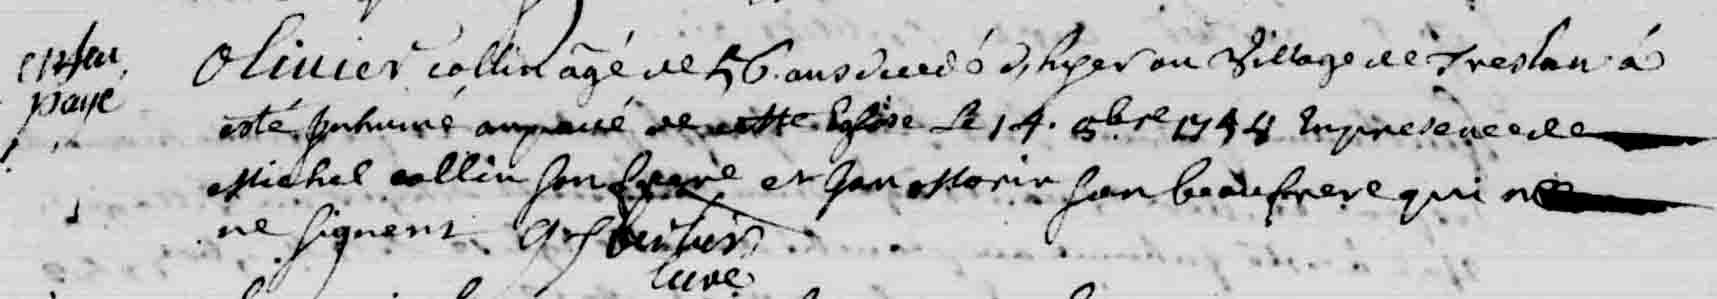 Olivier collin agé de 56 ans decedé d'hyer au village de Treslan á
paye
esté Inhumé au passé de cette Eglise Le 14. 8bre 1744 En presence de
Michel collin son frere et Jan Morin son beaufrere qui ne
ne signent
curé